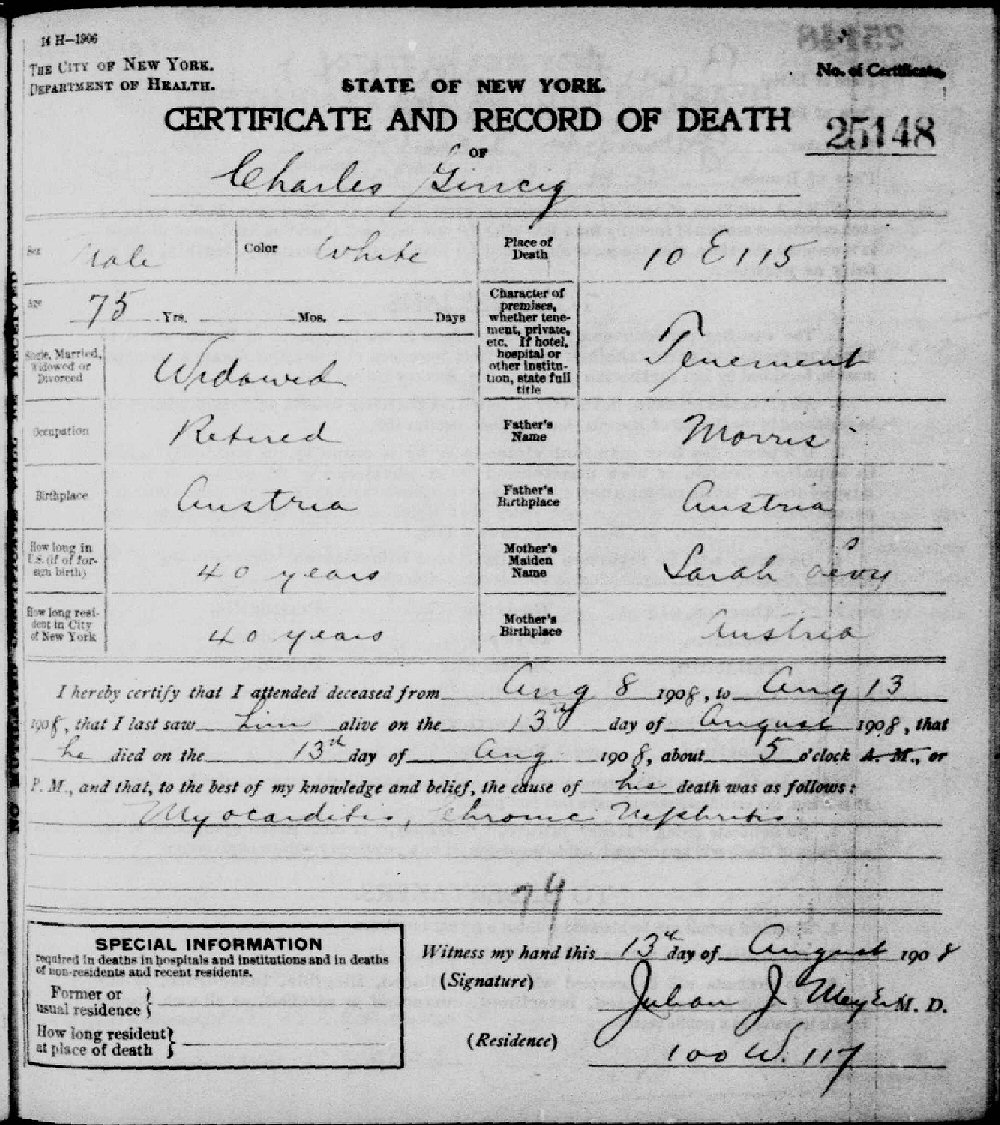 14 H—1906
THE CITY OF NEW YORK.
DEPARTMENT OF HEALTH.
STATE OF NEW YORK.
No. of Certificate,
CERTIFICATE AND RECORD OF DEATH
25148
OF
Charles
Sex Male Color White Place of Death 10 E 115
Age 75 Yrs. Mos. Days
Character of premises, whether tenement, private, etc. If hotel, hospital or other institution, state full title Tenement
Single, Married, Widowed or Divorced Widowed
Occupation Retired Father's Name Morris
Birthplace Austria Father's Birthplace Austria
How long in U.S. (if of foreign birth) 40 years Mother's Maiden Name Sarah
How long resident in City of New York 40 years Mother's Birthplace Austria
I hereby certify that I attended deceased from Aug 8 1908, to Aug 13
1908, that I last saw him alive on the 13th day of August 1908, that
he died on the 13th day of Aug 1908, about 5 o'clock A. M., or
P. M., and that, to the best of my knowledge and belief, the cause of his death was as follows:
Myocarditis, Chronic Nephritis.
74
SPECIAL INFORMATION
required in deaths in hospitals and institutions and in deaths
of non-residents and recent residents.
Former or usual residence
How long resident at place of death
Witness my hand this 13th day of August 1908
(Signature) Julian J Meyer M. D.
(Residence) 100 W. 117